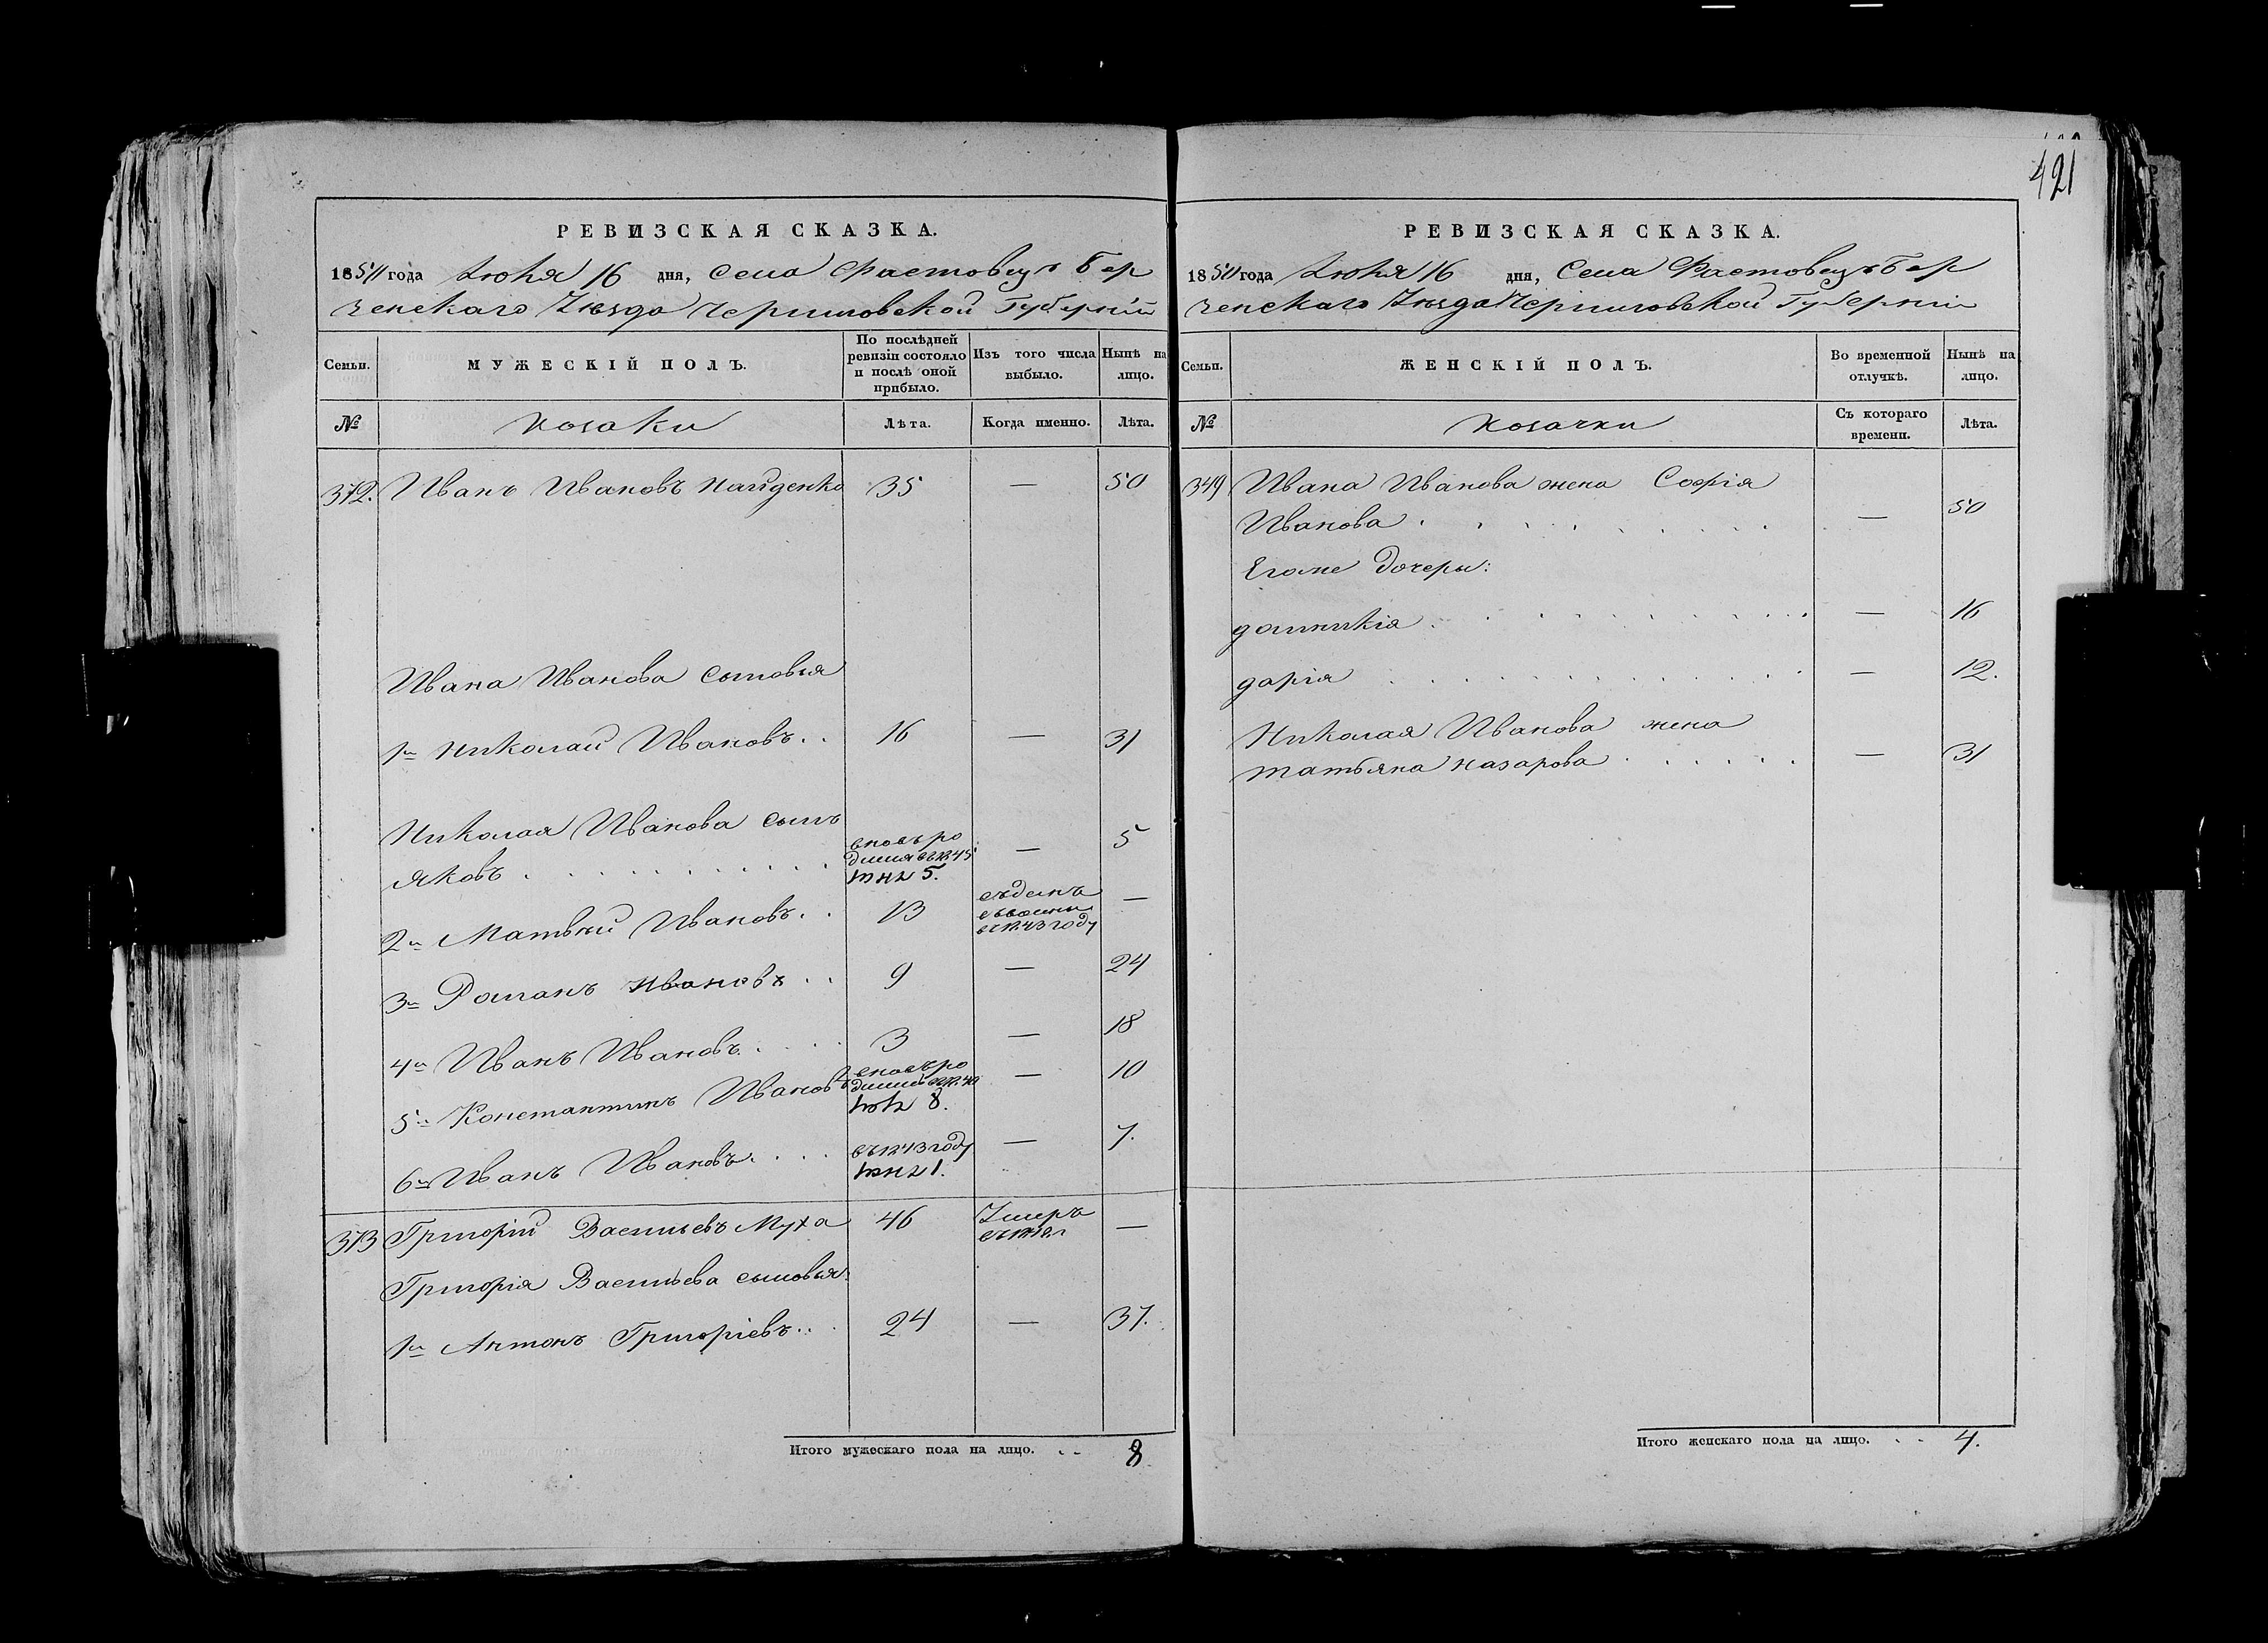 421
РЕВИЗСКАЯ СКАЗКА.
1850 года Іюня 16 дня, Села Фастовецъ Бор
зенскаго Уѣзда Черниговской Губерніи
Семьи. МУЖЕСКІЙ ПОЛЪ. По послѣдней ревизіи состояло и послѣ оной прибыло. Изъ того числа выбыло. Нынѣ на лицо.
№ Козаки Лѣта. Когда именно. Лѣта.
372. Иванъ Ивановъ Найденко 35 — 50
Ивана Иванова сыновья
1й Николай Ивановъ . . 16 — 31
Николая Иванова сынъ
Яковъ . . . . . . . . . . 5. — 5
2й Матвѣй Ивановъ . . 13 —
3й Романъ Ивановъ . . 9 — 24
4й Иванъ Ивановъ . . . . 3 — 18
5й Константинъ Ивановъ 8. — 10
6й Иванъ Ивановъ . . . . 1. — 7.
373 Григорій Васильевъ Муха 46 Умеръ —
Григорія Васильева сыновья:
1й Антонъ Григоріевъ . . . 24 — 37.
Итого мужескаго пола на лицо. . . 8
РЕВИЗСКАЯ СКАЗКА.
1850 года Іюня 16 дня, Села Фастовецъ Бор
зенскаго Уѣзда Черниговской Губерніи
Семьи. ЖЕНСКІЙ ПОЛЪ. Во временной отлучкѣ. Нынѣ на лицо.
№ Козачки Съ котораго времени. Лѣта.
349 Ивана Иванова жена Софія
Иванова . . . . . . . . — 50
Егоже дочеры:
домникія . . . . . . . . . — 16
дарія . . . . . . . . . . . — 12.
Николая Иванова жена
татьяна назарова . . . . . . — 31
Итого женскаго пола на лицо. . . 4.